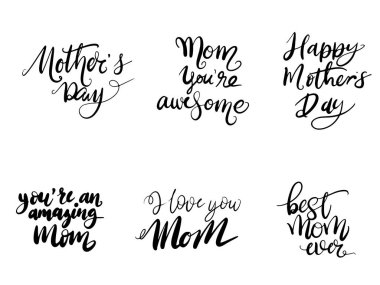 Mother's
Day
Mom
you're
awesome
Happy
Mother's
Day
you're an
amazing
Mom
I love you
Mom
best
Mom
ever